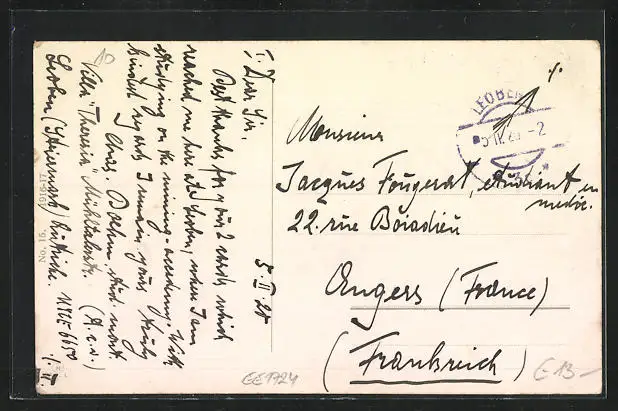 I. Dear Sir,
Best thanks for your 2 cards which
reached me here at Leoben, where I am
studying on the mining-academy. With
kindest regards I remain yours truly
Boehm, stud. mont.
Villa "Theresia" Mühltalerstr. (A.v.)
Leoben (Steiermark) Autriche.
5.II 20
No. 16. 1916-17
LEOBEN
Monsieur
Jacques Fougerat, étudiant en
medic.
22. rue Boiadieu
Angers (France)
(Frankreich)
EE1724
E13-
10